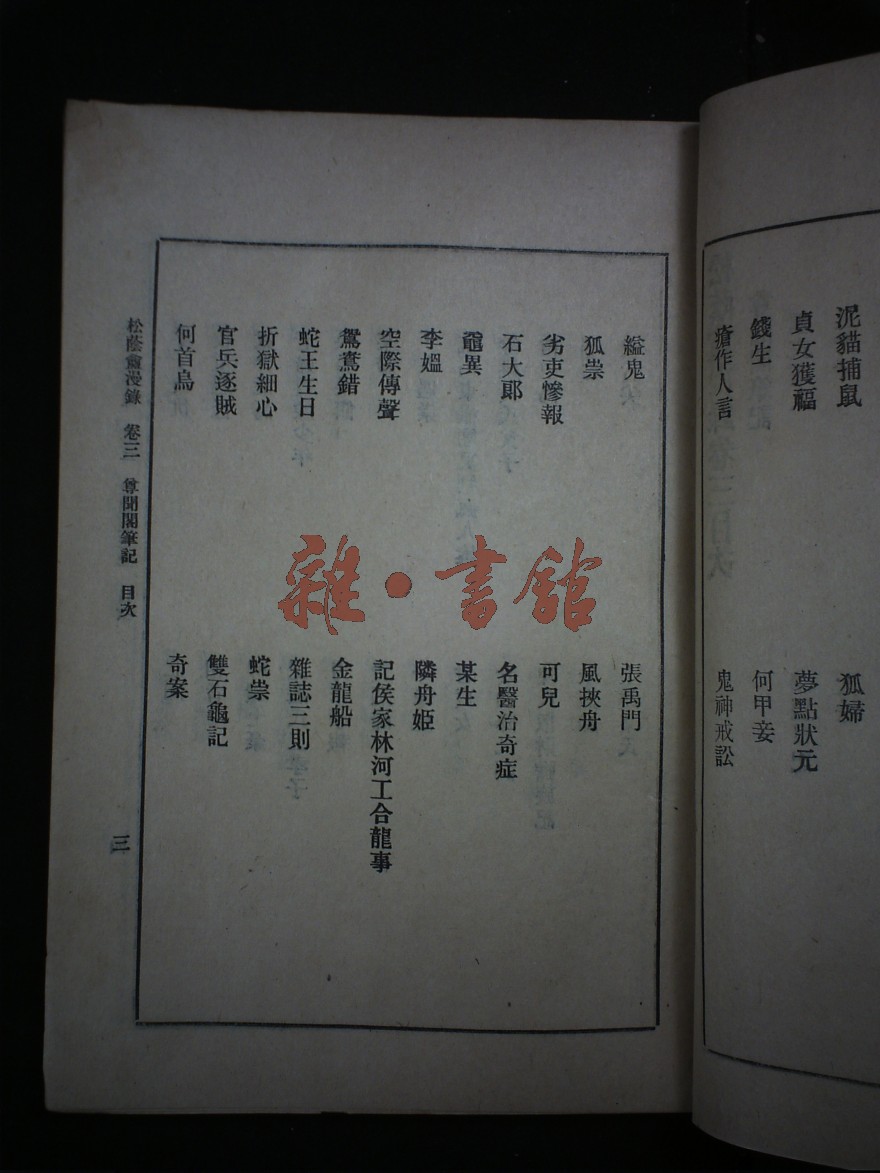 泥貓捕鼠
狐婦
貞女獲福
夢點狀元
錢生
何甲妾
瘡作人言
鬼神戒訟
縊鬼
張禹門
狐祟
風挾舟
劣吏慘報
可兒
石大郎
名醫治奇症
黿異
某生
李媼
隣舟姬
空際傳聲
記侯家林河工合龍事
鴛鴦錯
金龍船
蛇王生日
雜誌三則
折獄細心
蛇祟
官兵逐賊
雙石龜記
何首烏
奇案
松蔭盦漫錄 卷三 尊聞閣筆記 目次
三
雜·書館